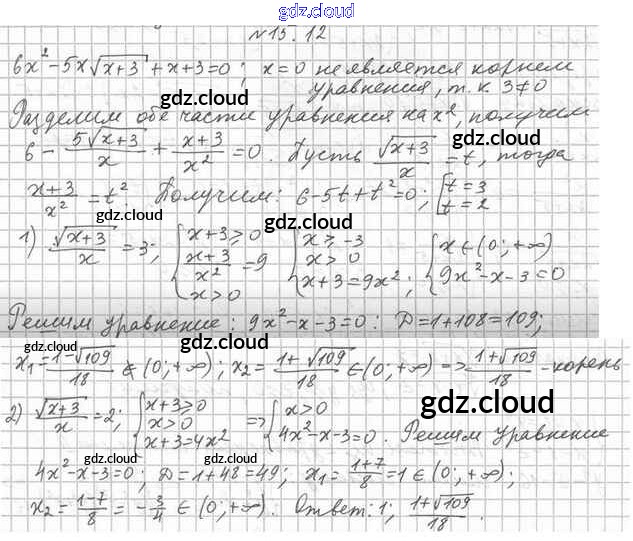 gdz.cloud
№13.12
6x² - 5x√(x+3) + x+3 = 0; x=0 не является корнем
уравнения, т.к 3≠0
gdz.cloud
Разделим обе части уравнения на x², получим
gdz.cloud
6 - 5√(x+3)/x + (x+3)/x² = 0. Пусть √(x+3)/x = t, тогда
(x+3)/x² = t². Получим: 6-5t+t²=0; [t=3 [t=2
gdz.cloud gdz.cloud
1) √(x+3)/x = 3; {x+3≥0 {(x+3)/x² = 9 {x>0 {x≥-3 {x>0 {x+3=9x²; {x∈(0;+∞) {9x²-x-3=0
gdz.cloud gdz.cloud
Решим уравнение: 9x²-x-3=0: D=1+108=109;
gdz.cloud gdz.cloud
x₁ = (1-√109)/18 ∉ (0;+∞); x₂ = (1+√109)/18 ∈ (0;+∞) => (1+√109)/18 - корень
gdz.cloud
2) √(x+3)/x = 2; {x+3≥0 {x>0 {x+3=4x² => {x>0 {4x²-x-3=0. Решим уравнение
gdz.cloud
4x²-x-3=0; D=1+48=49; x₁ = (1+7)/8 = 1 ∈ (0;+∞);
gdz.cloud gdz.cloud
x₂ = (1-7)/8 = -3/4 ∈ (0;+∞). Ответ: 1; (1+√109)/18.
gdz.cloud